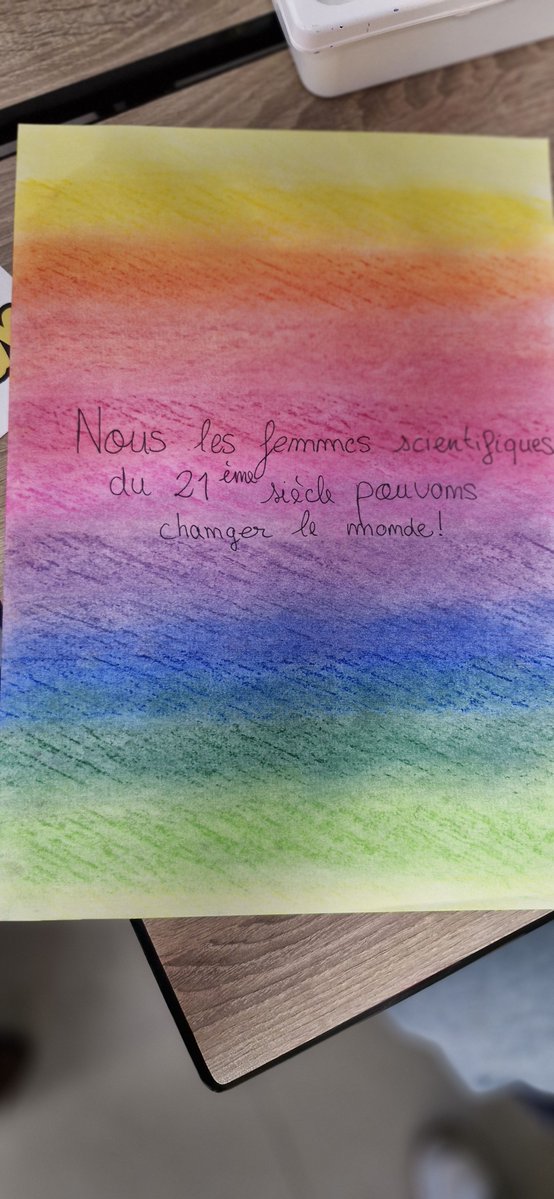 Nous les femmes scientifiques
du 21ème siècle pouvons
changer le monde!